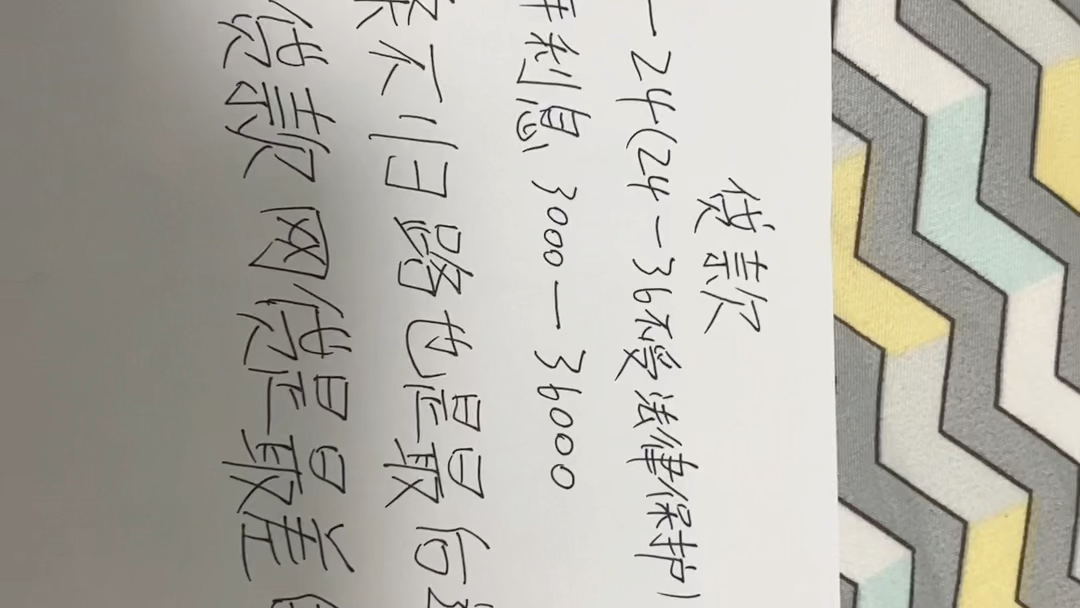 贷款
一24(24一36不受法律保护)
利息 3000一36000
不归路也是最后
贷款 网贷是最差